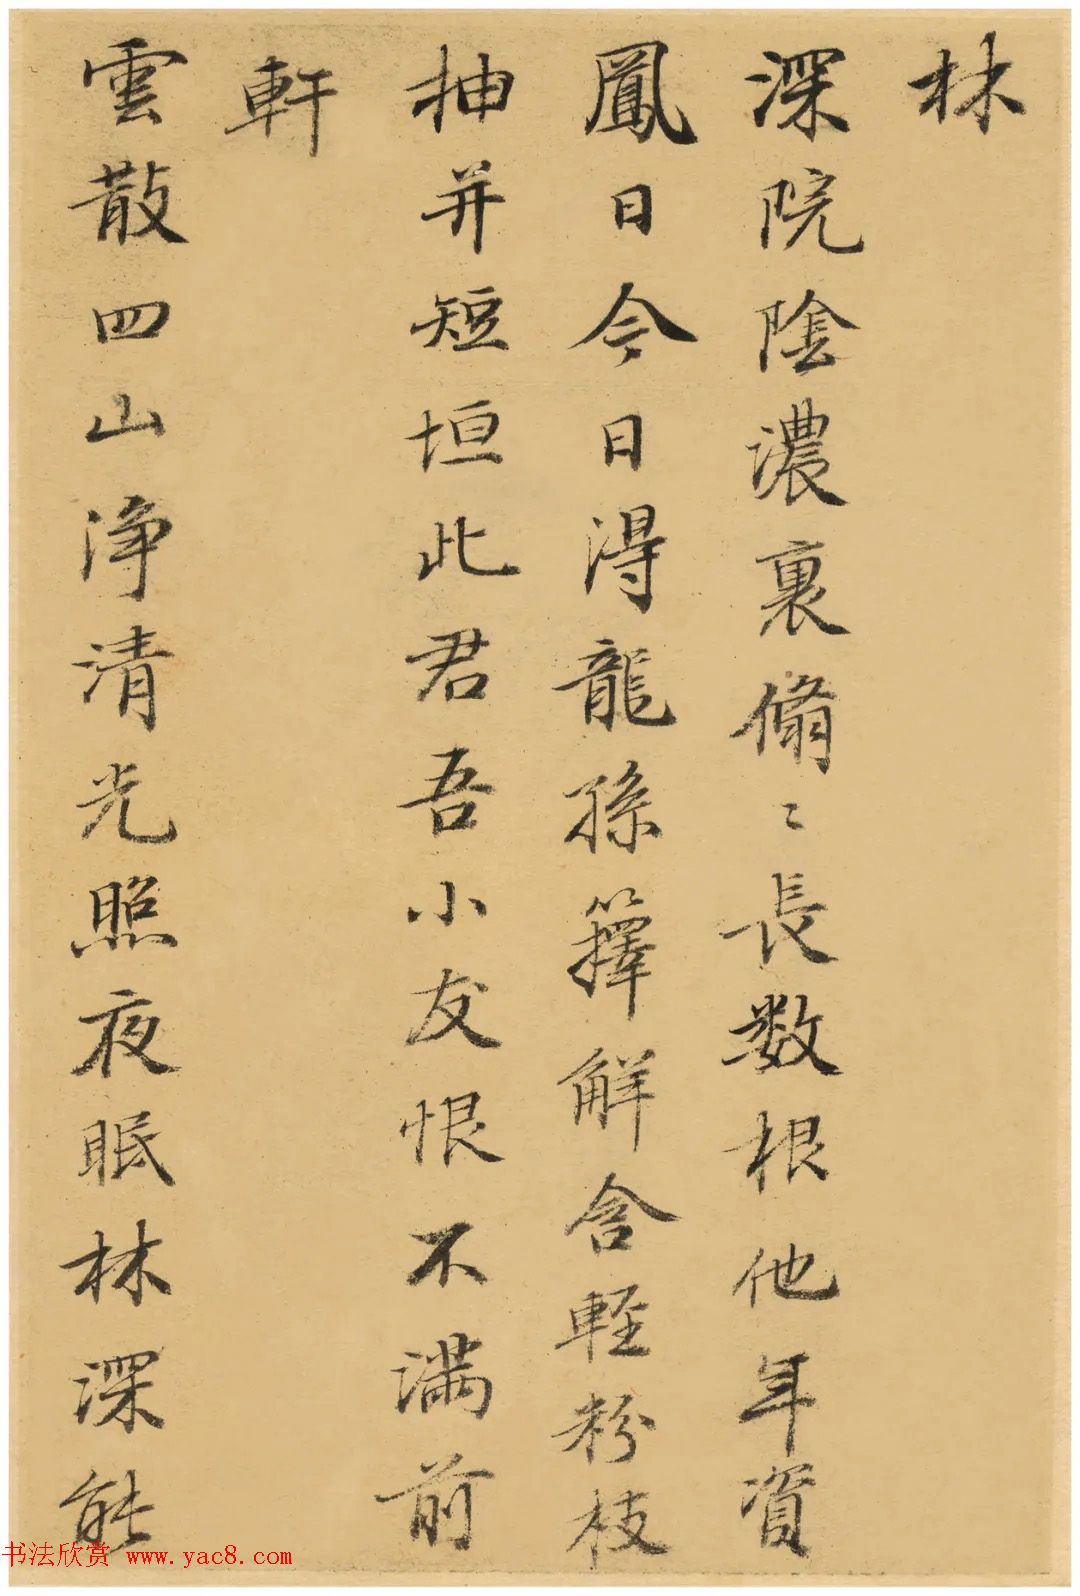 林
深院陰濃裏脩〻長数根他年資
鳳日今日得龍孫籜解含輕粉枝
抽并短垣此君吾小友恨不満前
軒
雲散四山净清光照夜眠林深能
书法欣赏 www.yac8.com